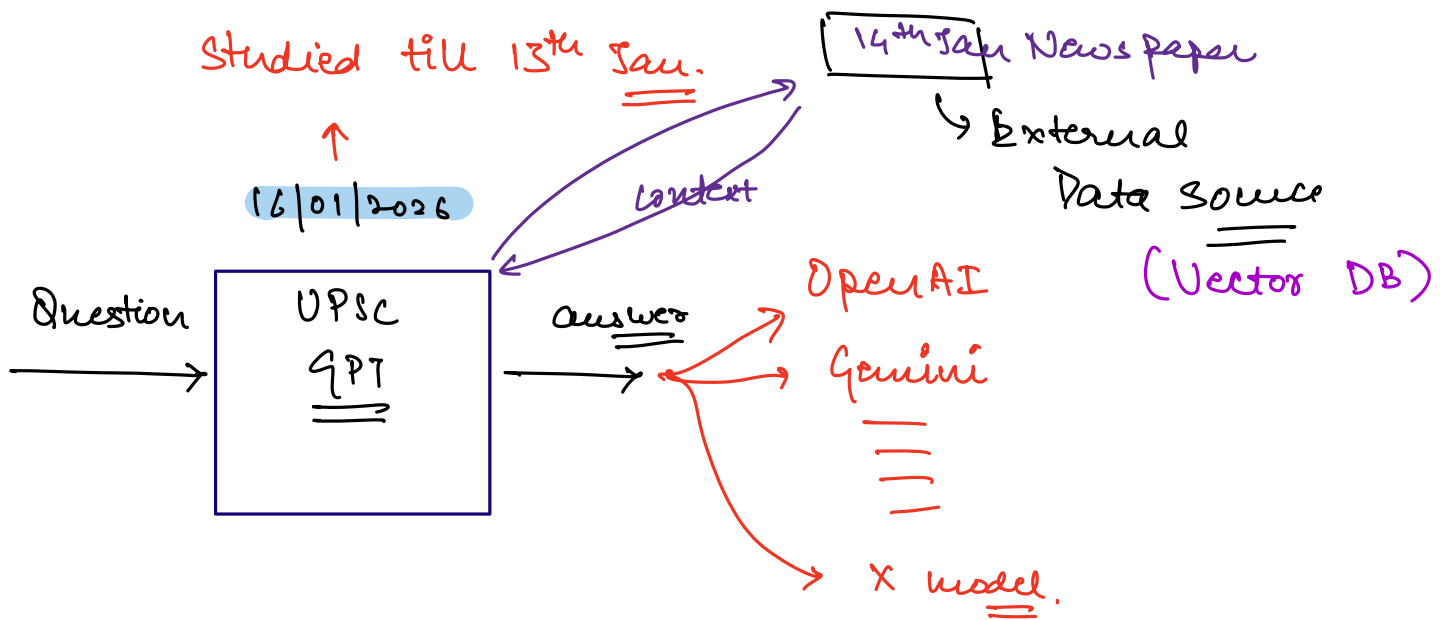 Studied till 13th Jan.
14th Jan Newspaper
External
Data Source
(Vector DB)
16/01/2026
context
Question
UPSC
GPT
answer
OpenAI
Gemini
X model.